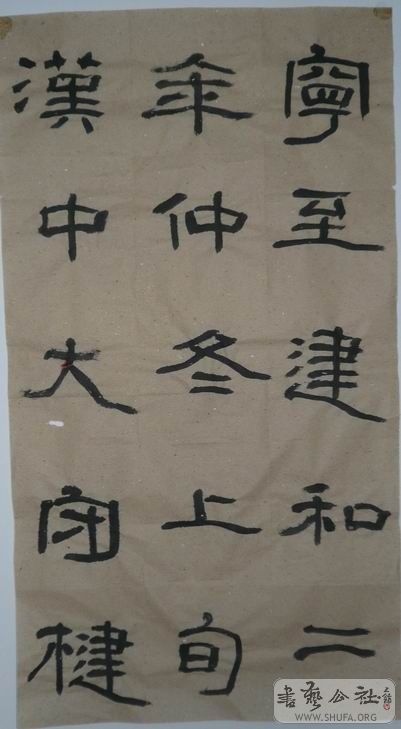 寧至建和二
年仲冬上旬
漢中大守楗
書藝公社
WWW.SHUFA.ORG